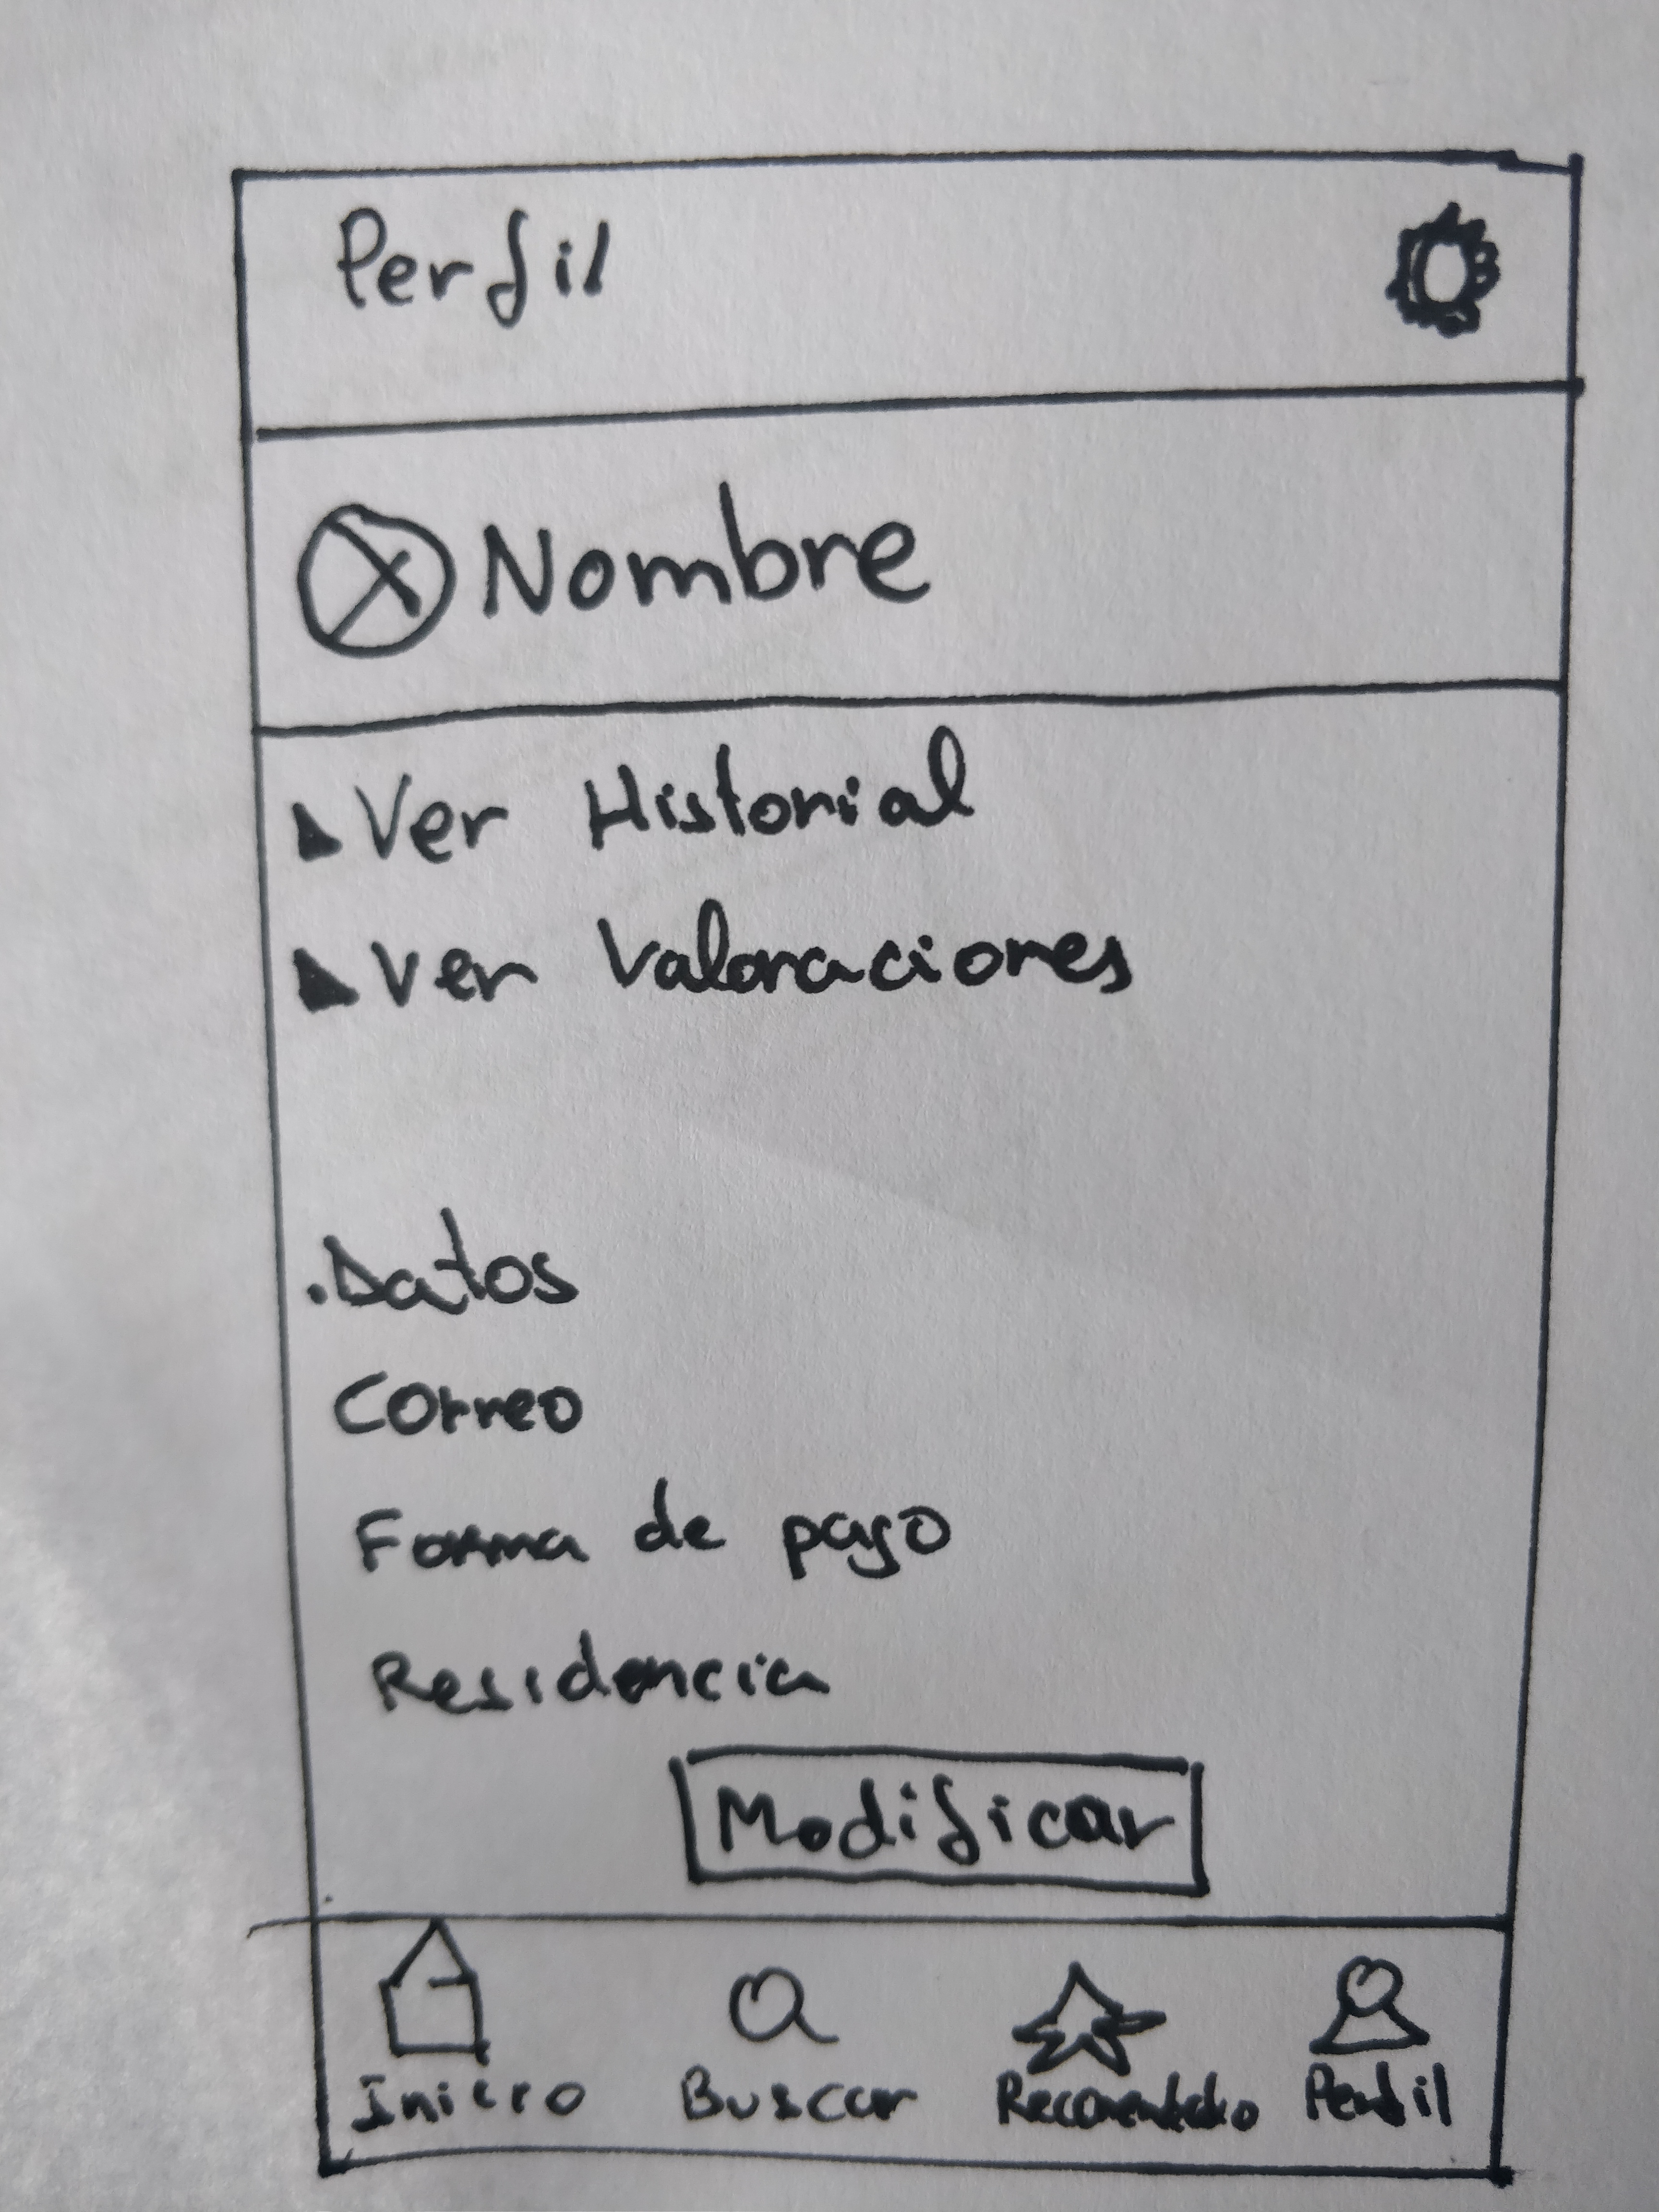 Perfil
Nombre
Ver Historial
Ver Valoraciones
.Datos
Correo
Forma de pago
Residencia
Modificar
Inicio Buscar Recomendado Perfil